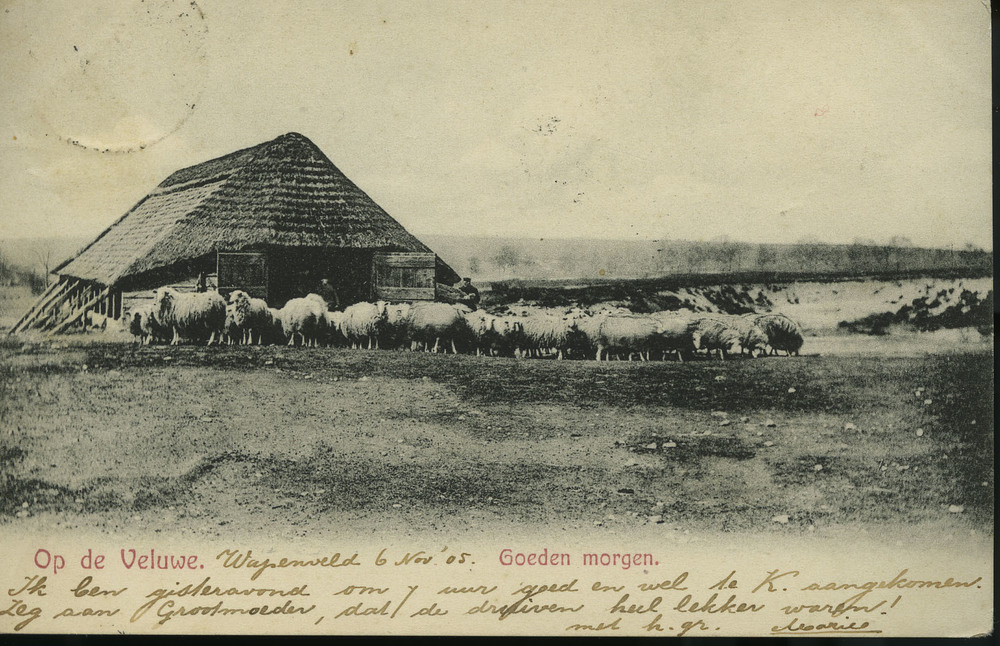 Op de Veluwe. Wapenveld 6 Nov '05. Goeden morgen.
Ik ben gisteravond om 7 uur goed en wel te K. aangekomen.
Zeg aan Grootmoeder, dat de druiven heel lekker waren!
met h. gr. Marie